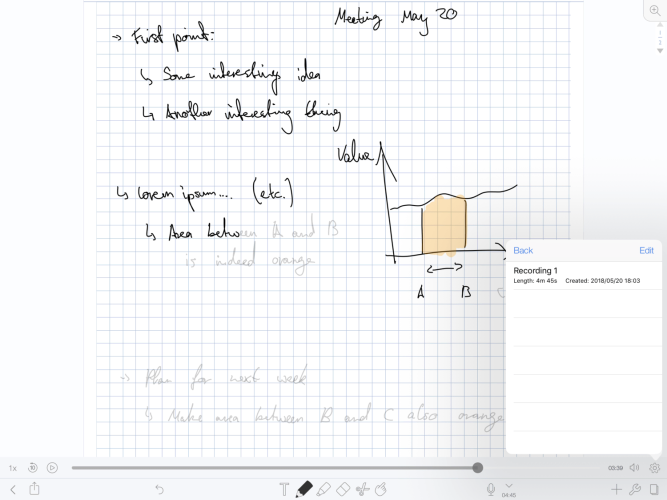 Meeting May 20
→ First point:
↳ Some interesting idea
↳ Another interesting thing
Value
↳ Lorem ipsum.... (etc.)
↳ Area between A and B
is indeed orange
A B
Back Edit
Recording 1
Length: 4m 45s Created: 2018/05/20 18:03
→ Plan for next week
↳ Make area between B and C also orange
1x 03:39
04:45